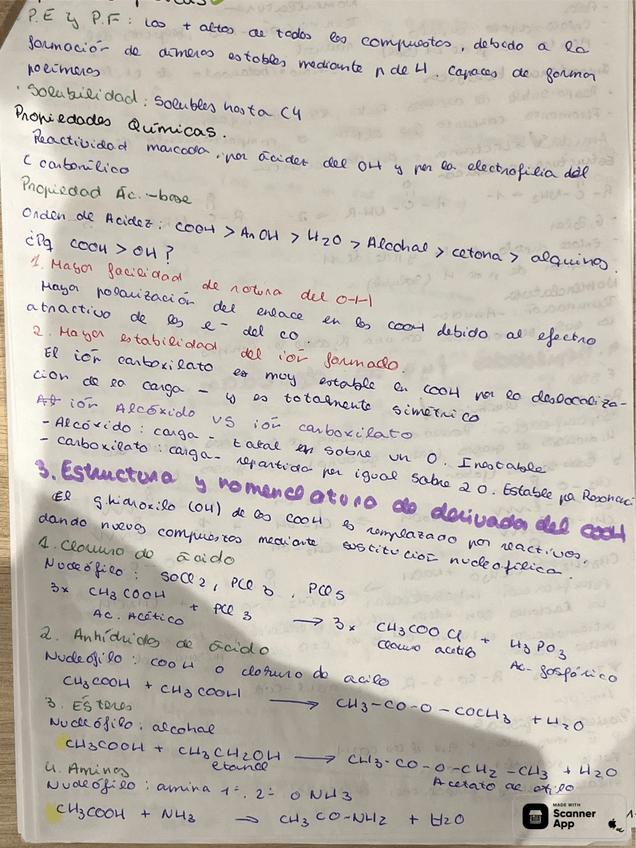 · P.E y P.F : Los + altos de todos los compuestos, debido a la
formación de dímeros estables mediante p de H. Capaces de forma
polímeros
· Solubilidad : Solubles hasta C4
Propiedades Químicas.
Reactividad marcada, por ácidez del OH y por la electrofilia del
C carbonílico
Propiedad Ác.-base
Orden de Acidez : COOH > ArOH > H2O > Alcohol > cetona > alquinos.
¿Pq COOH > OH ?
1. Mayor facilidad de rotura del O-H
Mayor polarización del enlace en los COOH debido al efectro
atractivo de los e- del co.
2. Mayor estabilidad del ión formado.
El ión carboxilato es muy estable en COOH por la deslocaliza-
ción de la carga - y es totalmente simétrico
ión Alcóxido VS ión carboxilato
- Alcóxido : carga - total en sobre un O. Inestable
- carboxilato : carga - repartida por igual sobre 2 O. Estable por Resonanci
3. Estructura y nomenclatura de derivada del COOH
El g.hidroxilo (OH) de los COOH es remplazado por reactivos,
dando nuevos compuestos mediante sustitución nucleofílica.
1. Cloruro de ácido
Nucleófilo : SOCl2, PCl3, PCl5
3x CH3COOH + PCl3 → 3x CH3COO Cl + H3PO3
Ac. Acético Cloruro acetilo Ac. fosfórico
2. Anhídridos de ácido
Nucleófilo : COOH o cloruro de acilo
CH3COOH + CH3COOH → CH3-CO-O-COCH3 + H2O
3. Ésteres
Nucleófilo : alcohol
CH3COOH + CH3CH2OH → CH3-CO-O-CH2-CH3 + H2O
etanol Acetato de etilo
4. Aminos
Nucleófilo : amina 1ª, 2ª o NH3
CH3COOH + NH3 → CH3CO-NH2 + H2O
MADE WITH
Scanner
App